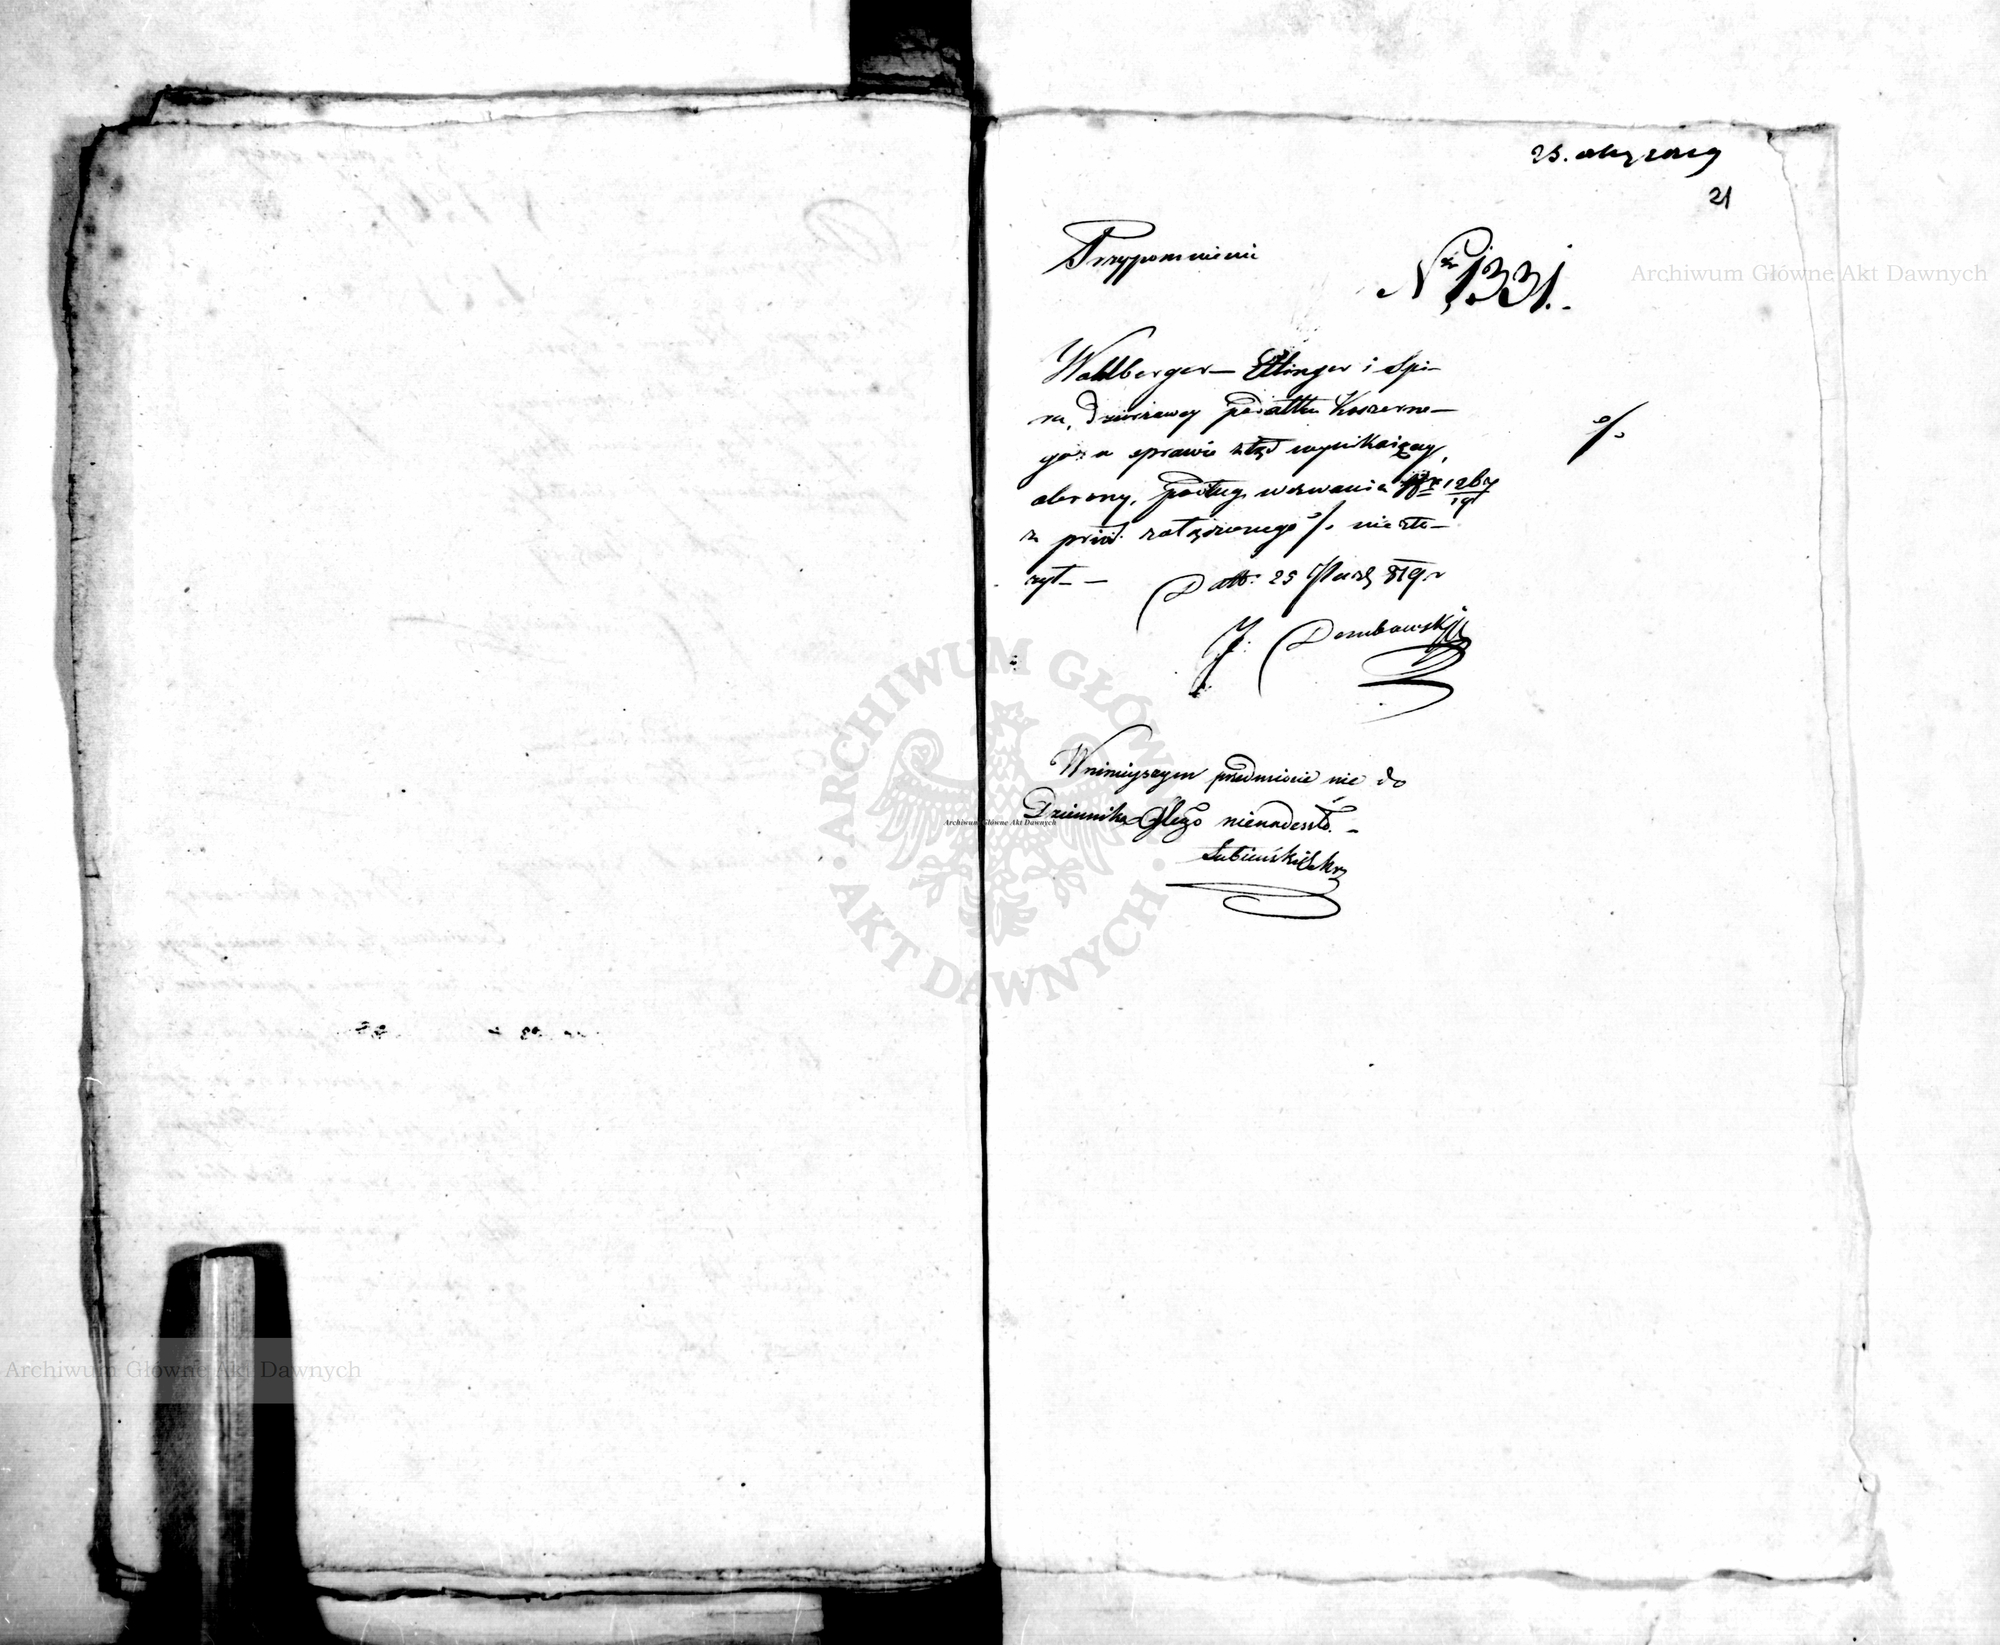 21
Przypomnienie
Nr 1331.
Wohlberger Ettinger i Spi-
ra, Dzierżawcy podatku Koszerne-
go w sprawie ztąd wynikaiącey
obrony, podług wezwania Nr 1267/19
z pod zatączonego ·/. nie zło-
żył
·/.
Datt: 25 Paźdz 819 r
J. Dembowski
W niniejszym przedmiocie nic do
Dziennika Głego nienadeszło. -
Łubieński Sekrz
Archiwum Główne Akt Dawnych
ARCHIWUM GŁÓWNE
AKT DAWNYCH
Archiwum Główne Akt Dawnych
Archiwum Główne Akt Dawnych